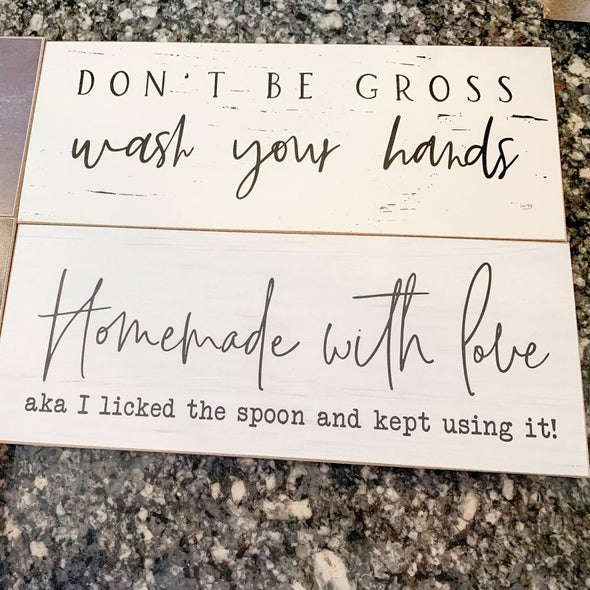 DON'T BE GROSS
wash your hands
Homemade with love
aka I licked the spoon and kept using it!